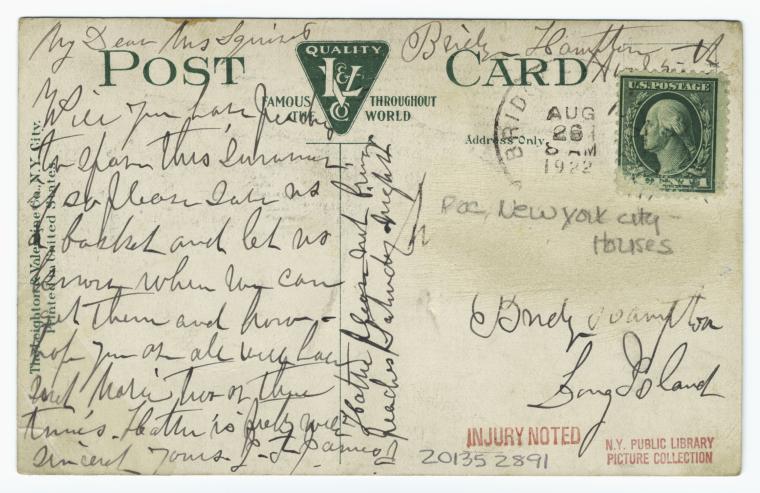 My Dear Mrs Squires
Bridge Hampton
POST CARD
QUALITY
L & V
Co
FAMOUS THROUGHOUT
THE WORLD
Address Only.
U.S. POSTAGE
1
BRID
AUG
26
8 AM
1922
Will you have
to spare this summer
if so please save us
a basket and let us
know when we can
get them and how
hope you are all well have
met Marie two or three
times. Hattie is pretty well
Sincerely yours L. F. James
Hattie
Peaches Saturday night
The Leighton & Valentine Co., N.Y. City.
Printed in United States.
Doc, New York City -
Houses
Bridge Hampton
Long Island
INJURY NOTED
20135 2891
N.Y. PUBLIC LIBRARY
PICTURE COLLECTION